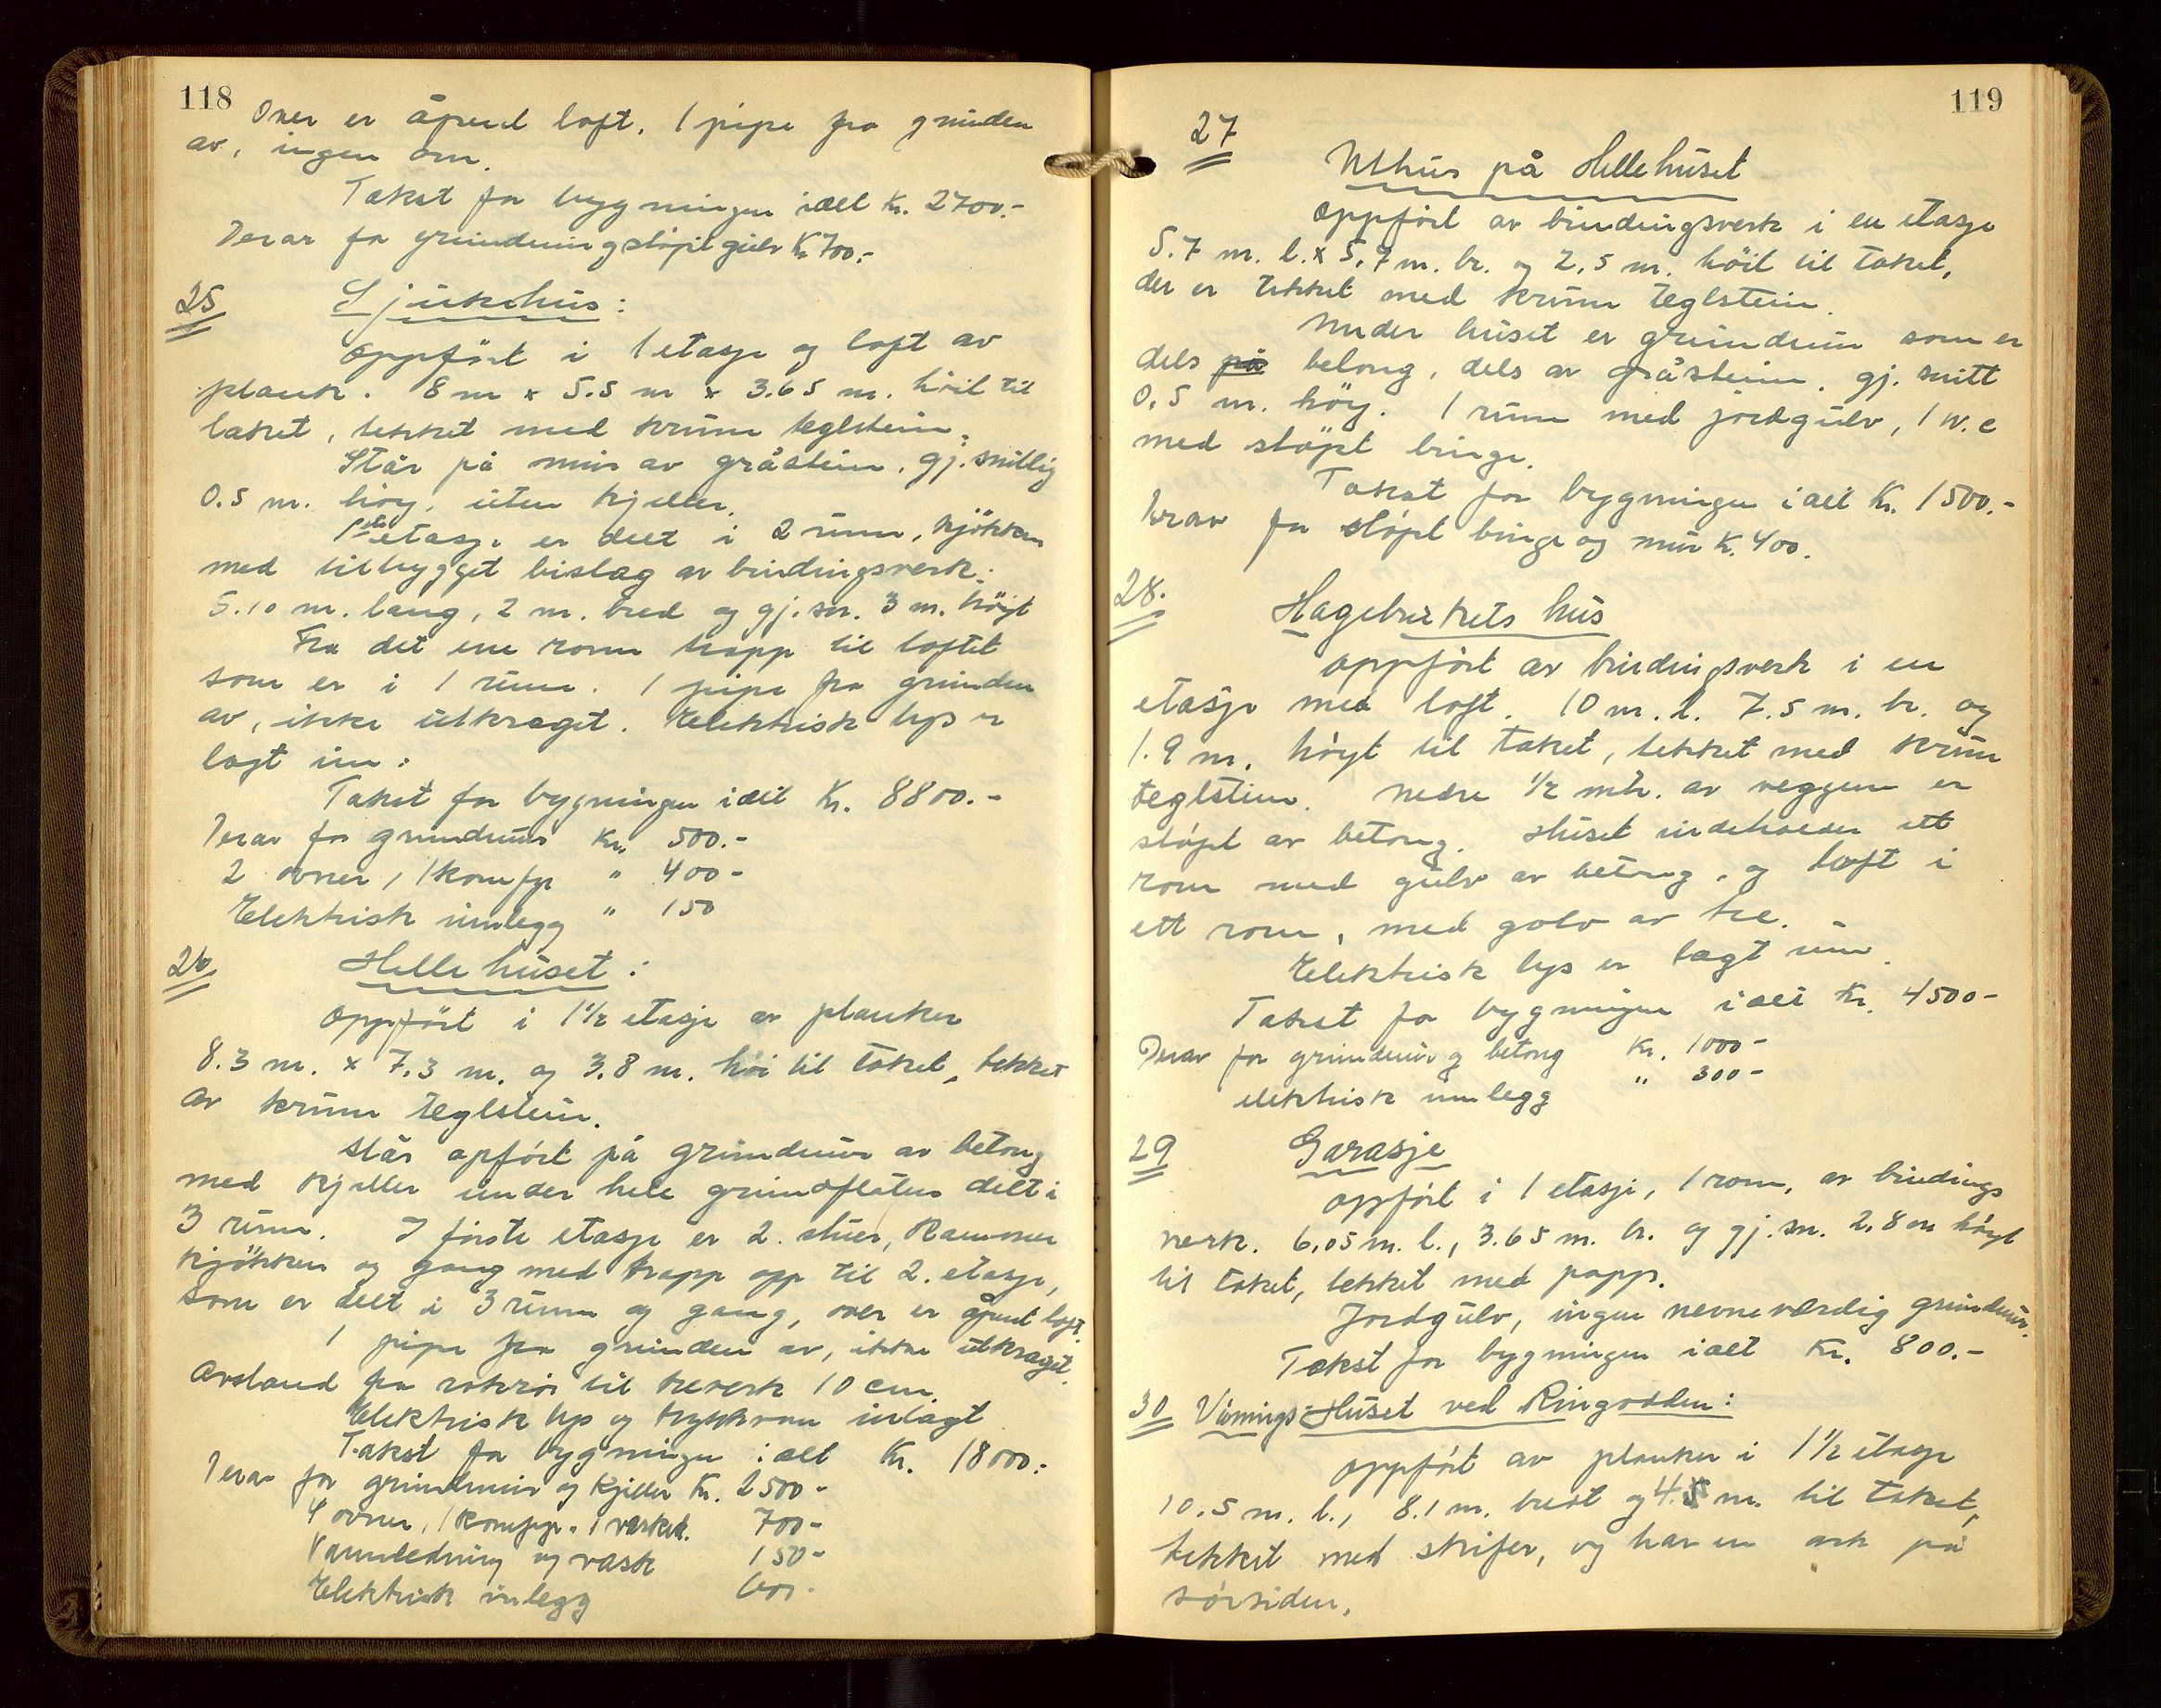 118
Over er åpent loft. 1 pipe fra grunden
av, ingen ovn.
Takst for bygningen ialt Kr. 2700.-
Derav for grundmur og støpt gulv Kr 700.-
25 Sjukehus:
oppført i 1 etasje og loft av
plank. 8 m x 5.5 m x 3.65 m. höit til
taket, tekket med krum teglstein.
Står på mur av gråstein, gj. snittlig
0.5 m. høy, uten kjeller.
1ste etasje er delt i 2 rum, kjökken
med tilbygget bislag av bindingsverk:
5.10 m. lang, 2 m. bred og gj. sn. 3 m. höyt
Fra det ene rom trapp til loftet
som er i 1 rum. 1 pipe fra grunden
av, ikke utkraget. Elektrisk lys er
lagt inn:
Takst for bygningen ialt Kr. 8800.-
Derav for grundmur Kr. 500.-
2 ovner, 1 komfyr " 400-
Elektrisk innlegg " 150
26 Helle huset:
Oppfört i 1½ etasje av planker
8.3 m. x 7.3 m. og 3.8 m. høi til taket, tekket
av krum teglstein.
står opført på grundmur av betong
med kjeller under hele grundflaten delt i
3 rum. I første etasje er 2. stuer, kammer
kjökken og gang med trapp opp til 2. etasje,
som er delt i 3 rum og gang, over er åpent loft.
1 pipe fra grunden av, ikke utkraget.
Avstand fra rökrör til treverk 10 cm.
Elektrisk lys og trykkvann inlagt
Takst for bygningen ialt Kr. 18000:
Derav for grundmur og kjeller Kr. 2500-
4 ovner, 1 komfyr. 1 vaskek. 700-
Vannledning og vask 150-
Elektrisk inlegg 600.-
119
27
Uthus på Hellehuset
oppført av bindingsverk i en etasje
5.7 m. l. x 5.7 m. br. og 2.5 m. höit til taket,
der er tekket med krum teglstein.
Under huset er grundmur som er
dels på betong, dels av gråstein. gj. snitt
0.5 m. höy. 1 rum med jordgulv, 1 W.C
med stöpt binge.
Takst for bygningen ialt Kr. 1500.-
Derav for stöpt binge og mur K. 400.
28. Hagebrukets hus
oppfört av bindingsverk i en
etasje med loft. 10 m. l. 7.5 m. br. og
1.9 m. høyt til taket, tekket med krum
teglstein. Nedre ½ mtr. av veggene er
støpt av betong. Huset indeholder ett
rom med gulv av betong, og loft i
ett rom, med golv av tre.
Elektrisk lys er lagt inn.
Takst for bygningen ialt Kr. 4500-
Derav for grundmur og betong Kr. 1000-
elektrisk innlegg " 300-
29 Garasje
oppfört i 1 etasje, 1 rom, av bindings
verk. 6.05 m. l., 3.65 m. br. og gj. sn. 2.8 m høyt
til taket, tekket med papp.
Jordgulv, ingen nevneværdig grundmur.
Takst for bygningen ialt Kr. 800.-
30 Vånings-Huset ved Ringodden:
oppfört av planker i 1½ etasje
10.5 m. l., 8.1 m. bredt og 4.5 m. til taket,
tekket med skifer, og har en ark på
sörsiden.